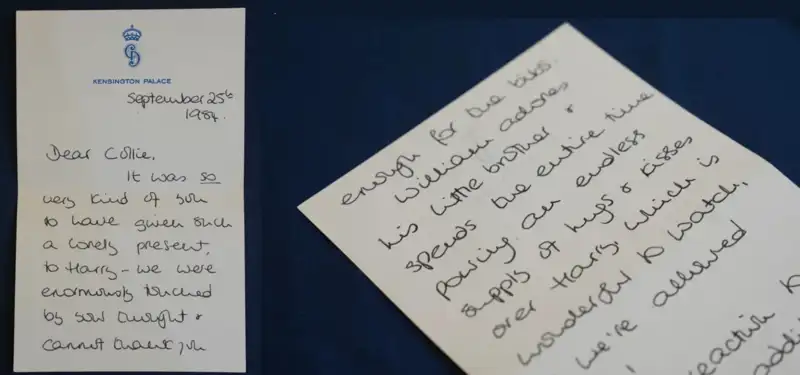 KENSINGTON PALACE
September 25th
1984.
Dear Collie,
It was so
very kind of you
to have given such
a lovely present,
to Harry – we were
enormously touched
by your thought &
cannot thank you
enough for the bibs.
William adores
his little brother &
spends the entire time
pouring an endless
supply of hugs & kisses
over Harry, which is
wonderful to watch,
we're allowed
reaction to